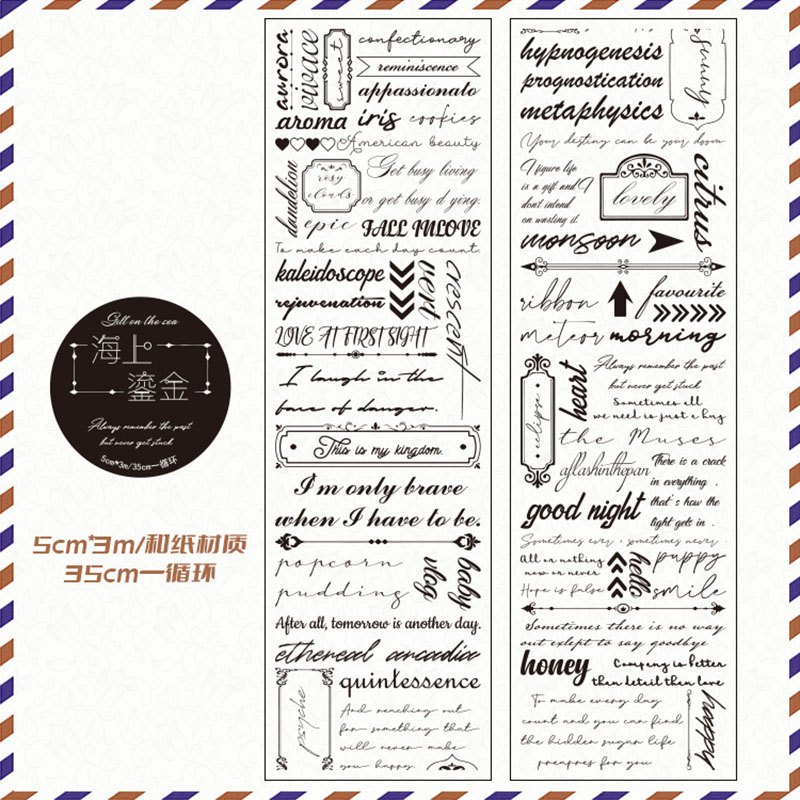 Gill on the sea
海上
鎏金
Always remember the past
but never get stuck
5cm*3m/35cm一循环
5cm*3m/和纸材质
35cm一循环
aurora
vivace
sweet
confectionary
reminiscence
appassionato
aroma iris cookies
American beauty
dandelion
rosy
clouds
Get busy living
or get busy d ying.
epic FALL INLOVE
To make each day count
kaleidoscope
rejuvenation
vert
crescent
LOVE AT FIRST SIGHT
I laugh in the
face of danger.
This is my kingdom.
I'm only brave
when I have to be.
popcorn
pudding
vlog
baby
After all, tomorrow is another day.
ethereal arcadia
quintessence
psyche
And reaching out
for something that
will never make
you happy.
hypnogenesis
prognostication
metaphysics
sunny
Your destiny can be your doom
I figure life
is a gift and I
don't intend
on wasting it.
lovely
citrus
monsoon
ribbon
favourite
meteor morning
eclipse
heart
Always remember the past
but never get stuck
Sometimes all
we need is just a hug
the Muses
aflashinthepan
There is a crack
in everything.
that's how the
light gets in.
good night
Sometimes ever, sometimes never
All or nothing
now or never
Hope is false
hello
puppy
smile
Sometimes there is no way
out exlept to say goodbye
honey
Company is better
than detail than love
To make every day
count and you can find
the hidden sugar life
preapres for you
happy